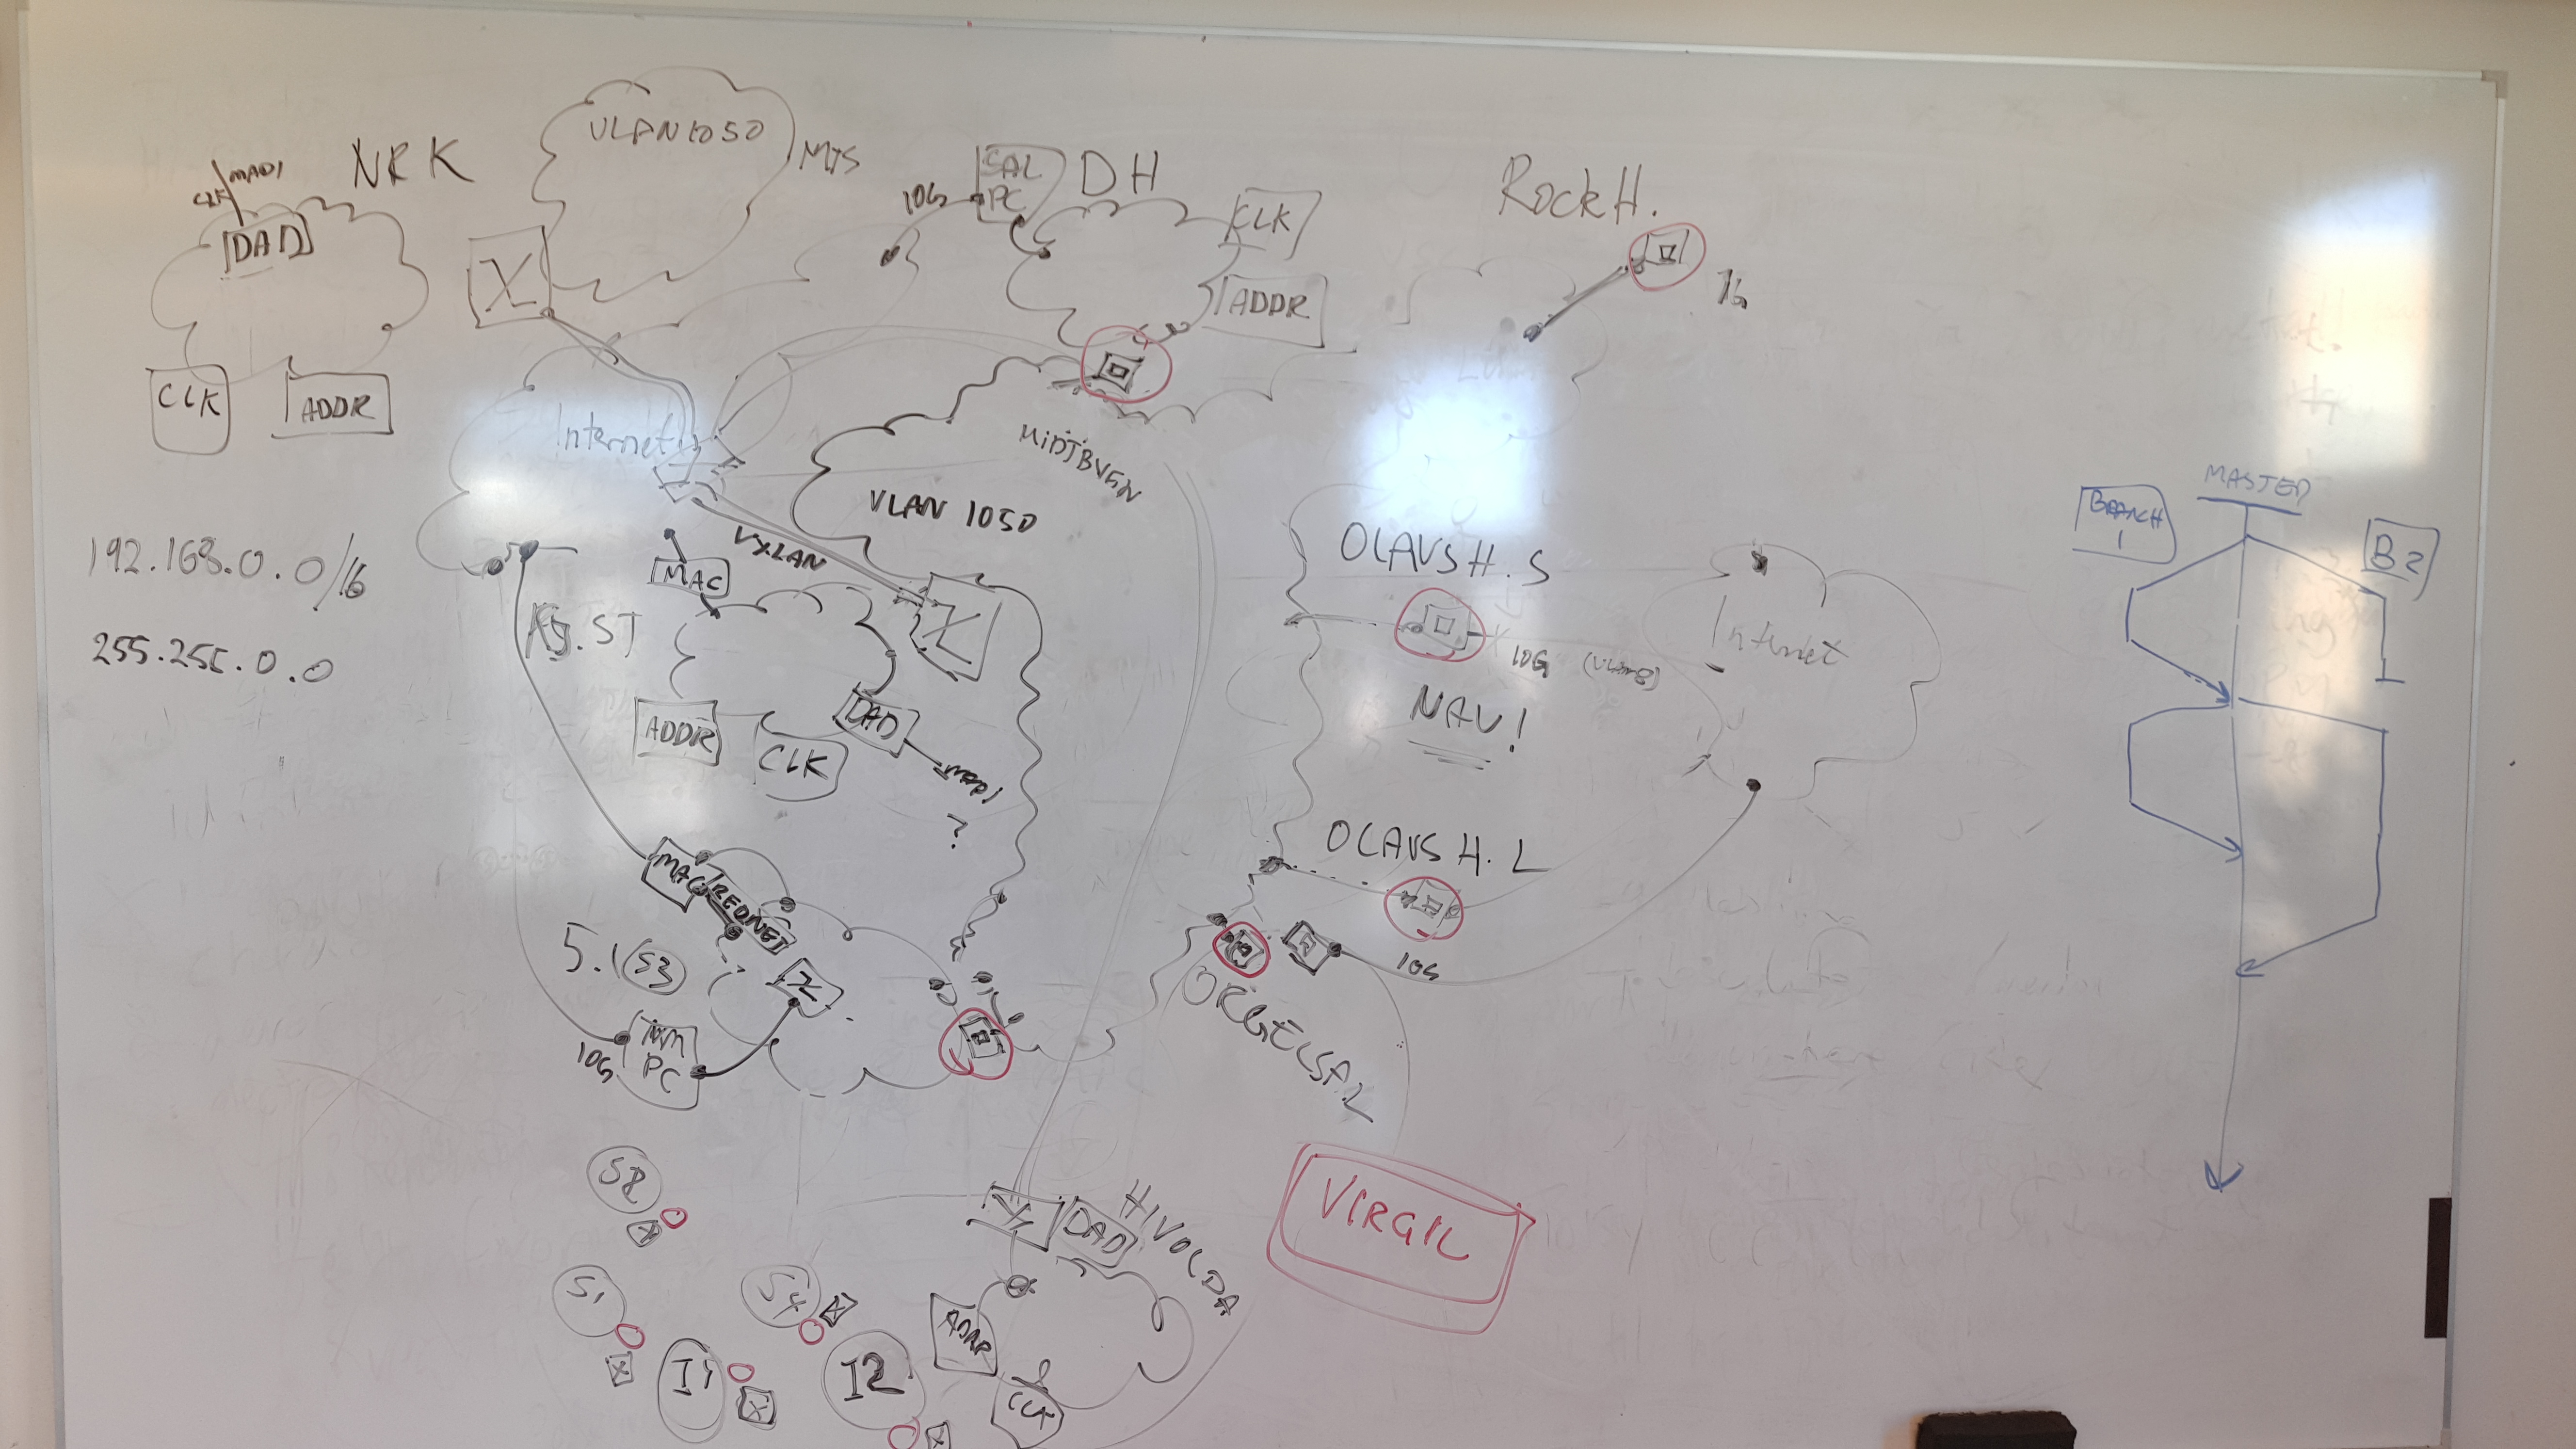 NRK
MADI
CLK
DAD
CLK
ADDR
VLAN 1050
MTS
X
10G
SAL
PC
DH
CLK
ADDR
Rock H.
1G
Internet
MIDTBYEN
VLAN 1050
VXLAN
X
192.168.0.0/16
255.255.0.0
MAC
ADDR
CLK
DAD
?
MAC
REDNET
5.1
S3
PC
10G
OLAVS H. S
10G
NAV!
Internet
OLAVS H. L
10G
ORGELSAL
VIRGIL
S2
S1
S4
I1
I2
DAD
HIVOLDA
ADDR
CLK
MASTER
BRANCH
1
B2